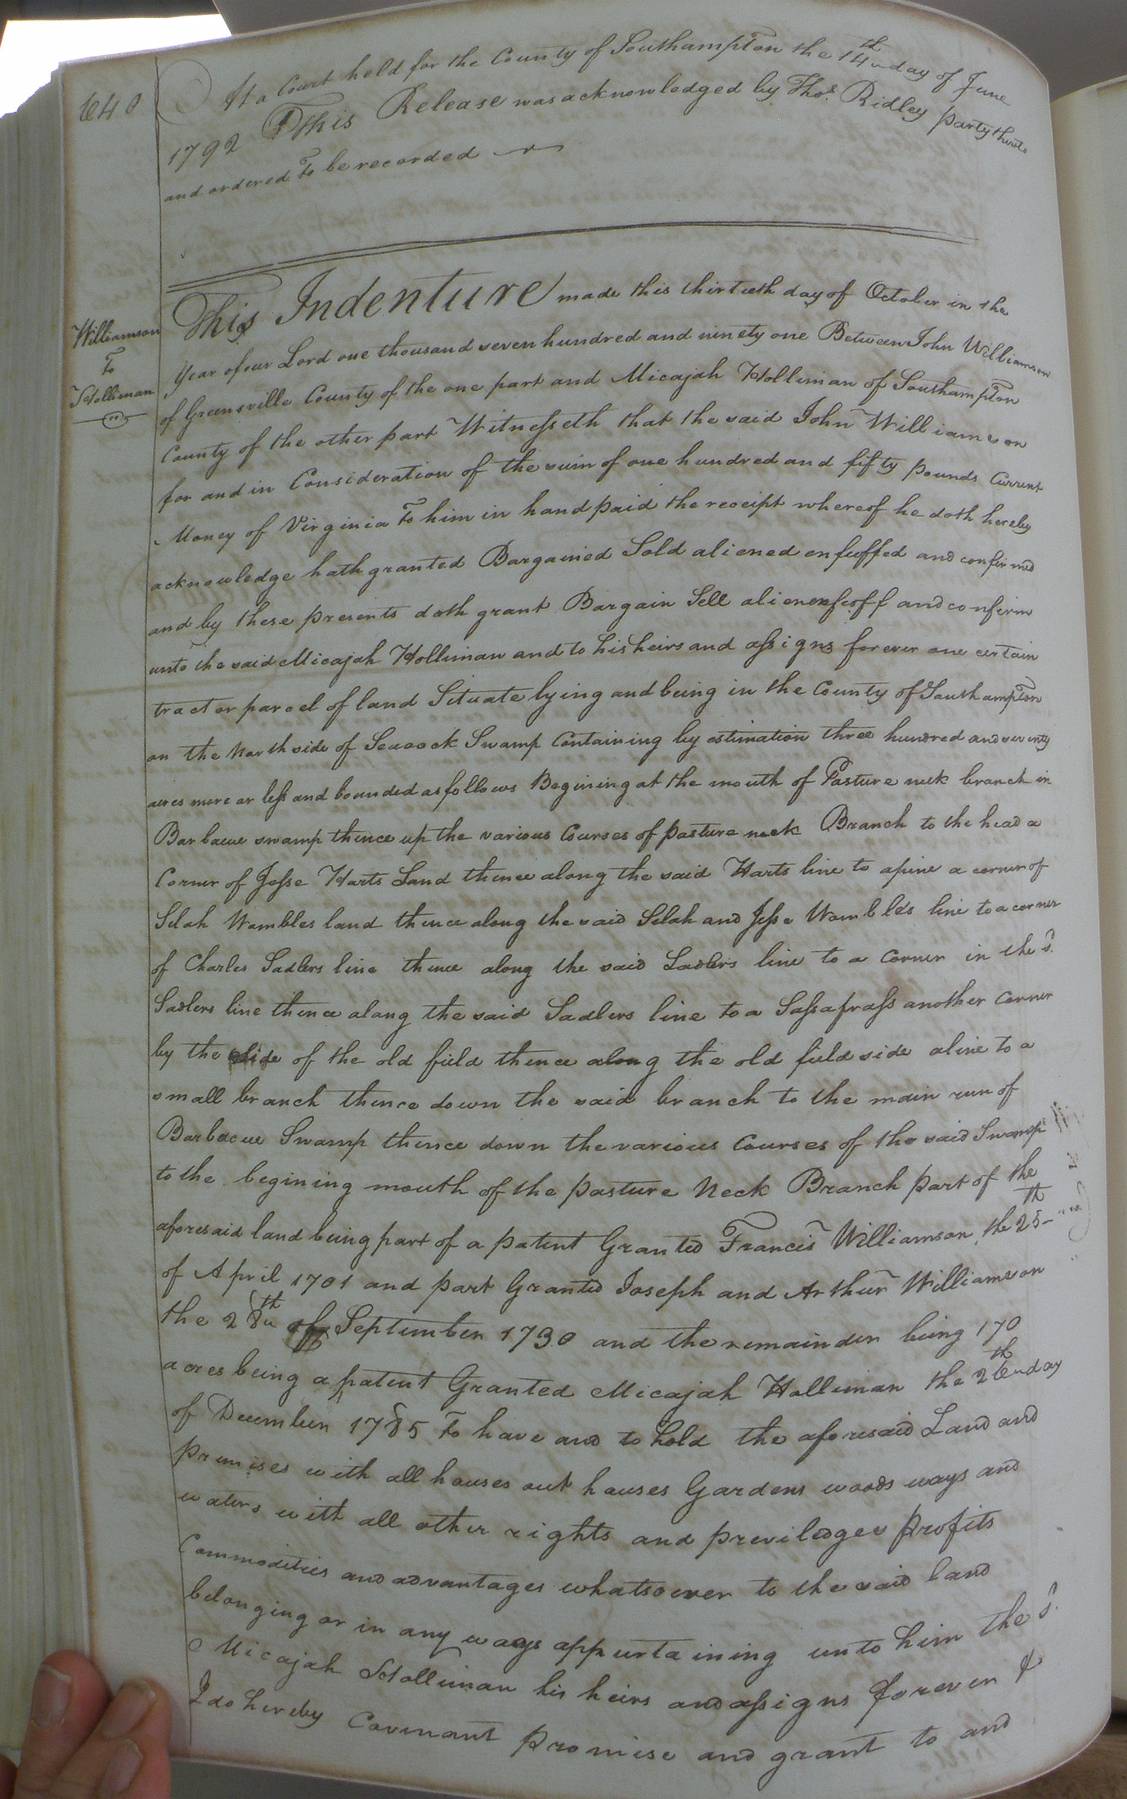 640
At a Court held for the County of Southampton the 14th day of June
1792 This Release was acknowledged by Thos. Ridley party thereto
and ordered To be recorded
Williamson
To
Holliman
This Indenture made this thirtieth day of October in the
Year of our Lord one thousand seven hundred and ninety one Between John Williamson
of Greensville County of the one part and Micajah Holliman of Southampton
County of the other part Witnesseth that the said John Williamson
for and in Consideration of the sum of one hundred and fifty pounds Current
Money of Virginia To him in hand paid the receipt whereof he doth hereby
acknowledge hath granted Bargained Sold aliened enfeffed and confirmed
and by these presents doth grant Bargain Sell alien enfeoff and confirm
unto the said Micajah Holliman and to his heirs and assigns forever one certain
tract or parcel of land Situate lying and being in the County of Southampton
on the North side of Seacock Swamp Containing by estimation three hundred and seventy
acres more or less and bounded as follows Begining at the mouth of Pasture neck branch in
Barbacue swamp thence up the various Courses of pasture neck Branch to the head a
Corner of Jesse Harts Land thence along the said Harts line to a pine a corner of
Selah Wombles land thence along the said Selah and Jesse Wombles line to a corner
of Charles Sadlers line thence along the said Sadlers line to a Corner in the sd.
Sadlers line thence along the said Sadlers line to a Sassafrass another Corner
by the side of the old field thence along the old field side a line to a
small branch thence down the said branch to the main run of
Barbacue Swamp thence down the various Courses of the said Swamp
to the begining mouth of the pasture Neck Branch part of the
aforesaid land being part of a patent Granted Francis Williamson the 25th
of April 1701 and part Granted Joseph and Arthur Williamson
the 28th of September 1730 and the remainder being 170
acres being a patent Granted Micajah Holliman the 26th day
of December 1785 To have and to hold the aforesaid Land and
premises with all houses out houses Gardens woods ways and
waters with all other rights and previledges profits
Commodities and advantages whatsoever to the said land
belonging or in any ways appurtaining unto him the sd.
Micajah Holliman his heirs and assigns forever &
I do hereby Covenant promise and grant to and